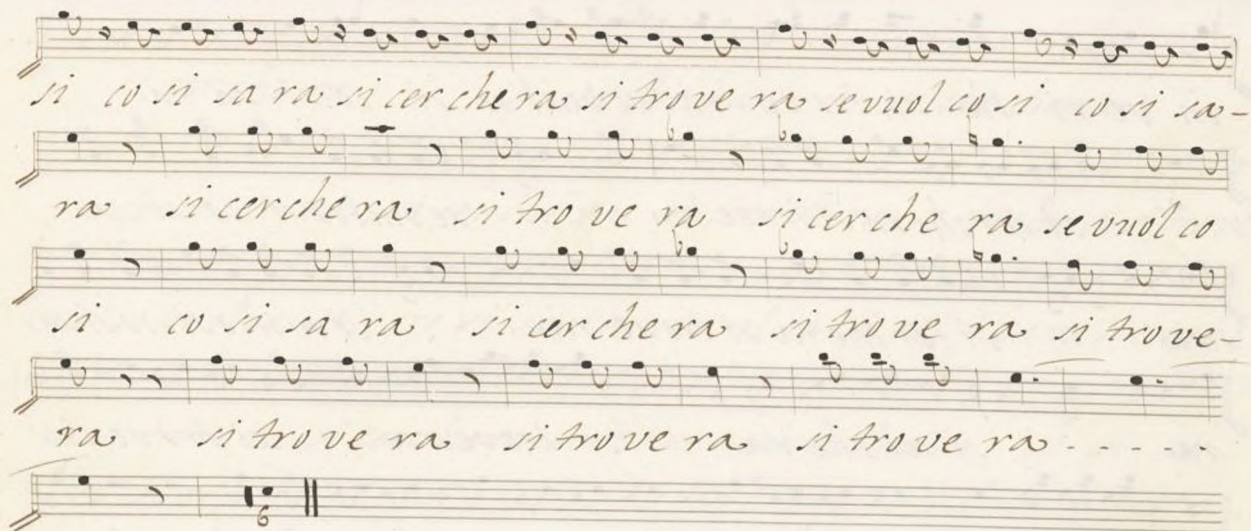 si co si sa ra si cer che ra si trove ra se vuol co si co si sa-
ra si cer che ra si tro ve ra si cer che ra se vuol co
si co si sa ra si cer che ra si trove ra si trove-
ra si trove ra si trove ra si trove ra - - - - -
6